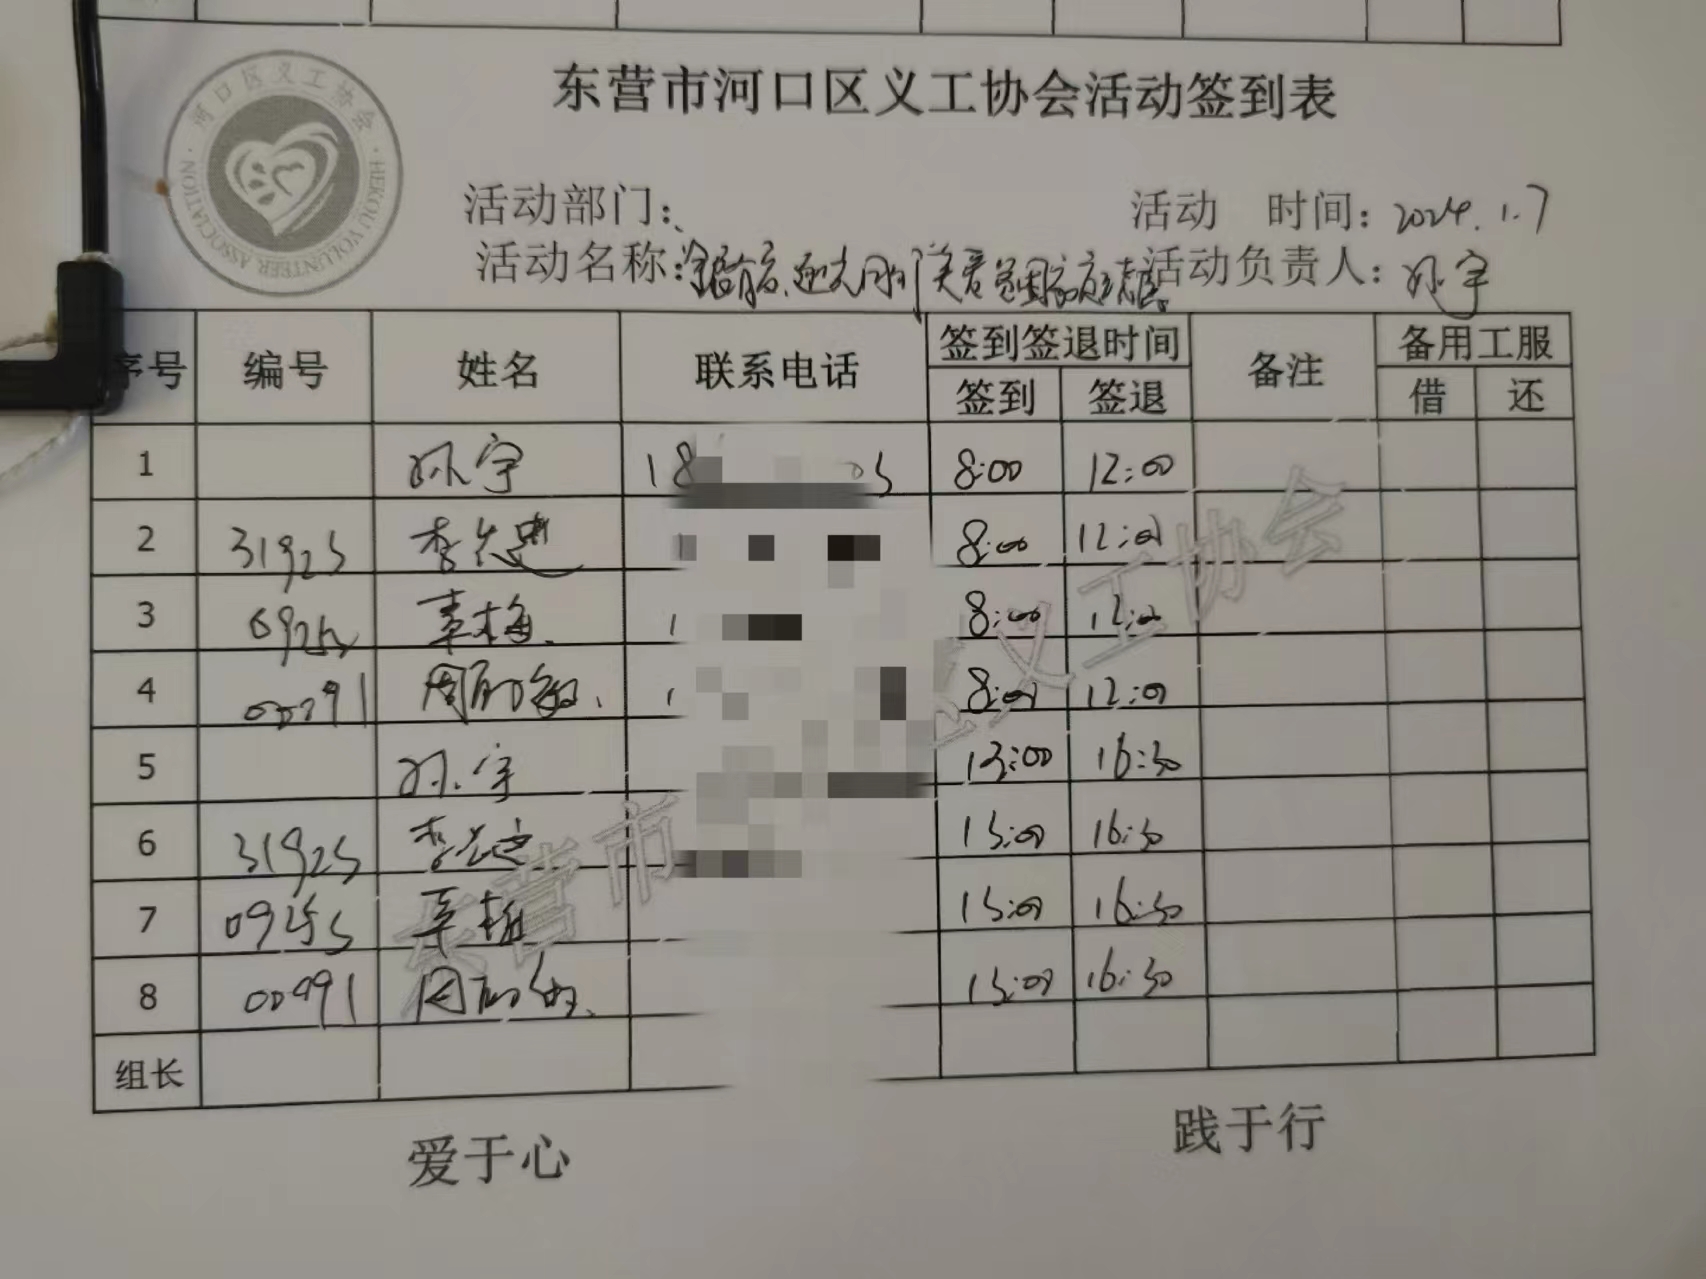 东营市河口区义工协会活动签到表
河口区义工协会
HEKOU VOLUNTEER ASSOCIATION
活动部门: 活动 时间: 2024.1.7
活动名称: 活动负责人: 孙宇
序号 编号 姓名 联系电话 签到签退时间 签到 签退 备注 备用工服 借 还
1 孙宇 18 05 8:00 12:00
2 31925 李 8:00 12:00
3 梅 8:00 12:00
4 00991 周 8:00 12:00
5 孙宇 13:00 16:30
6 31925 李 13:00 16:30
7 09255 梅 13:00 16:30
8 00991 周 13:00 16:30
组长
爱于心 践于行
东营市 义工协会